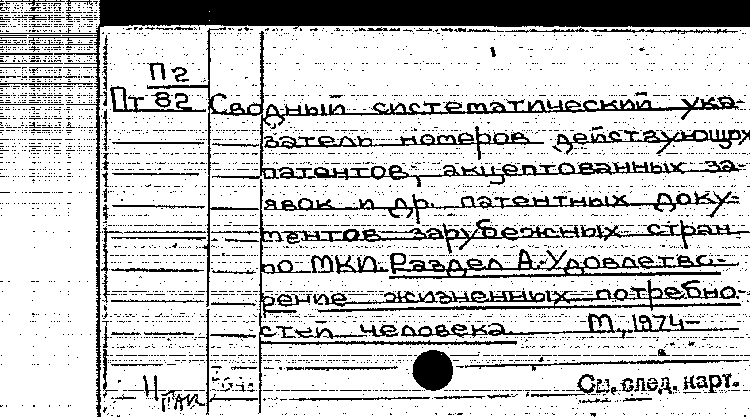 П2
Пт 82 Сводный систематический ука-
затель номеров действующих
патентов, акцептованных за-
явок и др. патентных доку-
ментов зарубежных стран
по МКИ. Раздел А. Удовлетво-
рение жизненных потребно-
стей человека М., 1974-
См. след. карт.